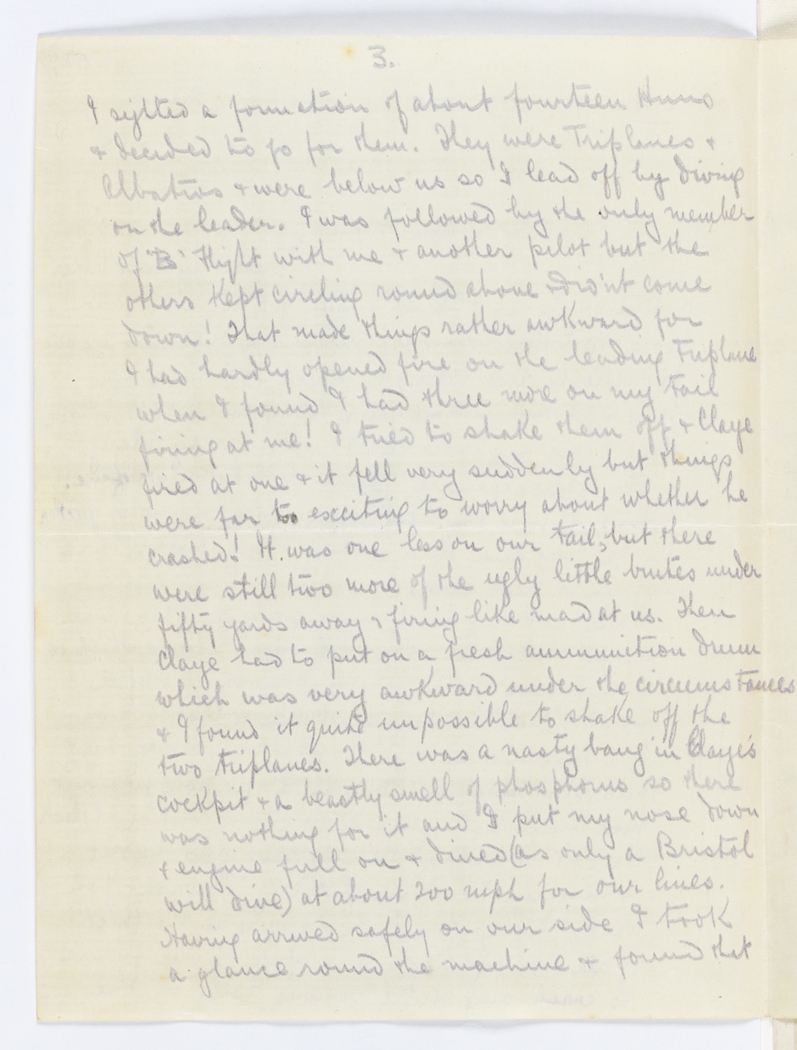 3.
I sighted a formation of about fourteen Huns
& decided to go for them. They were Triplanes &
Albatros & were below us so I lead off by diving
on the leader. I was followed by the only member
of 'B' Flight with me & another pilot but the
others kept circling round above & did'nt come
down! That made things rather awkward for
I had hardly opened fire on the leading Triplane
when I found I had three more on my tail
firing at me! I tried to shake them off & Claye
fired at one & it fell very suddenly but things
were far too exciting to worry about whether he
crashed! It was one less on our tail, but there
were still two more of the ugly little brutes under
fifty yards away & firing like mad at us. Then
Claye had to put on a fresh ammunition drum
which was very awkward under the circumstances
& I found it quite impossible to shake off the
two triplanes. There was a nasty bang in Claye's
cockpit & a beastly smell of phosphorus so there
was nothing for it and I put my nose down
& engine full on & dived (as only a Bristol
will dive) at about 200 mph for our lines.
Having arrived safely on our side I took
a glance round the machine & found that